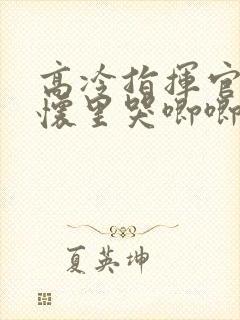 高冷指揮官
懷里哭唧唧
夏英坤